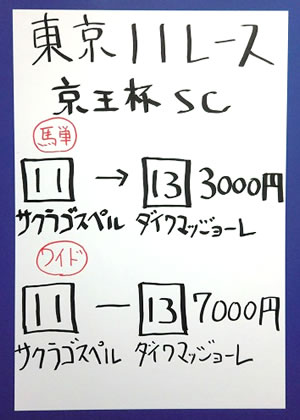 東京11レース
京王杯SC
馬単
11 → 13 3000円
サクラゴスペル ダイワマッジョーレ
ワイド
11 ― 13 7000円
サクラゴスペル ダイワマッジョーレ